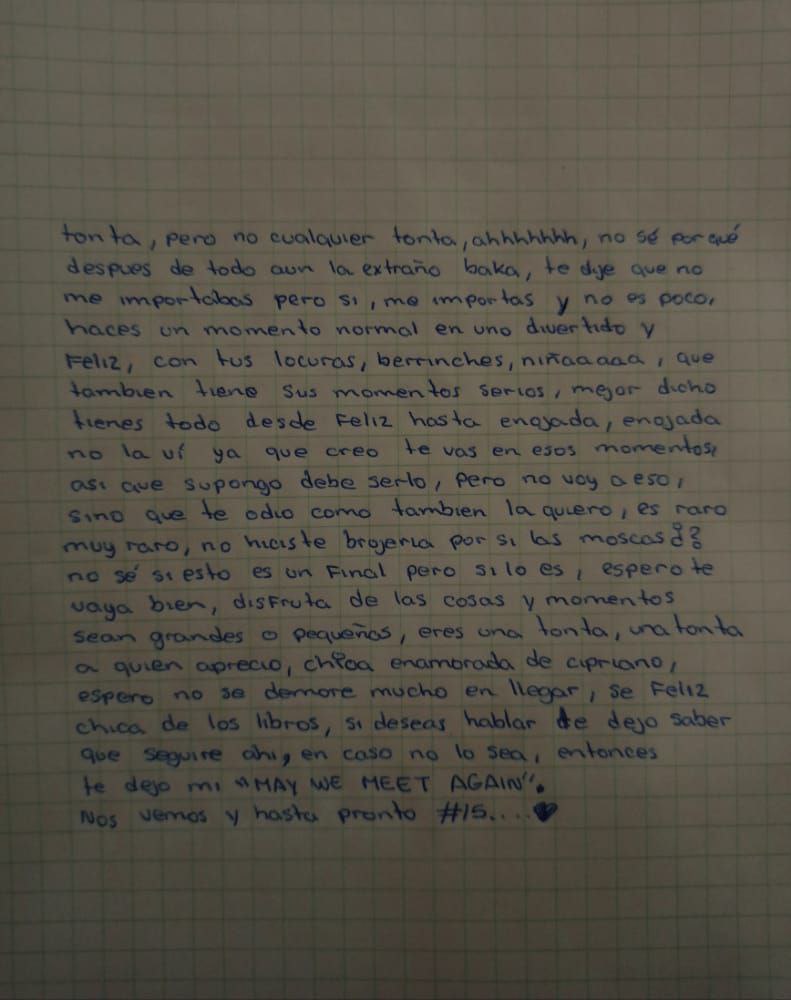 tonta, pero no cualquier tonta, ahhhhhhh, no sé porqué
despues de todo aun la extraño baka, te dije que no
me importabas pero si, me importas y no es poco,
haces un momento normal en uno divertido y
Feliz, con tus locuras, berrinches, niñaaaaa, que
tambien tiene sus momentos serios, mejor dicho
tienes todo desde Feliz hasta enojada, enojada
no la ví ya que creo te vas en esos momentos,
asi que supongo debe serlo, pero no voy a eso,
sino que te odio como tambien la quiero, es raro
muy raro, no hiciste brojeria por si las moscas¿?
no sé si esto es un Final pero si lo es, espero te
vaya bien, disFruta de las cosas y momentos
sean grandes o pequeñas, eres una tonta, una tonta
a quien aprecio, chica enamorada de cipriano,
espero no se demore mucho en llegar, se Feliz
chica de los libros, si deseas hablar te dejo saber
que seguire ahi, en caso no lo sea, entonces
te dejo mi "MAY WE MEET AGAIN".
Nos vemos y hasta pronto #15....♥